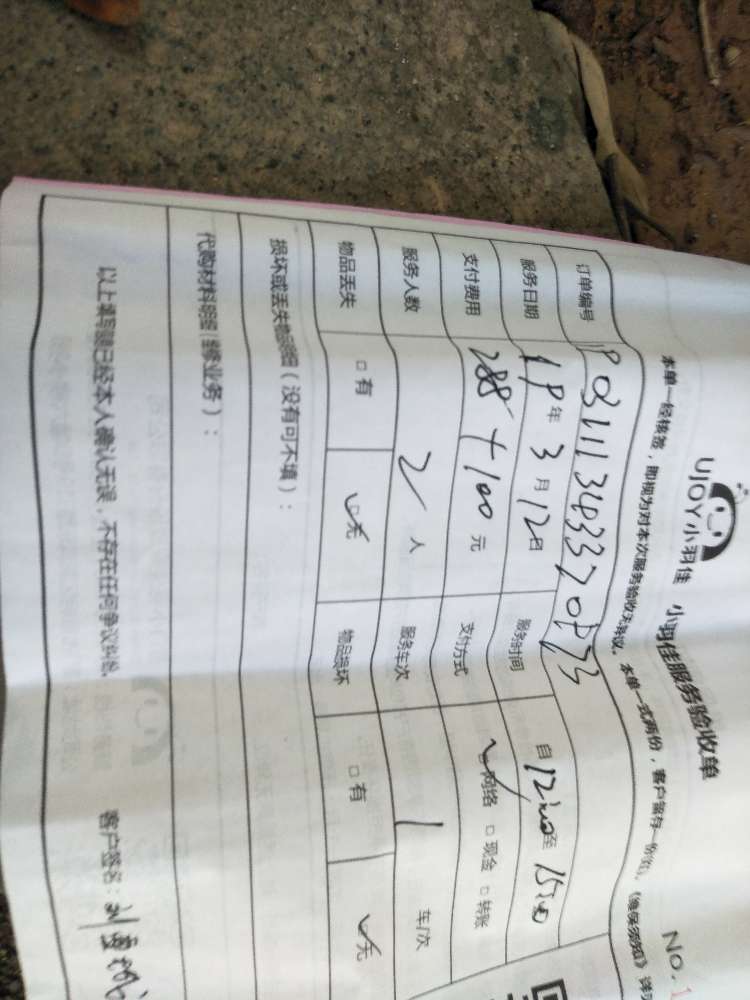 UJOY小羽佳 小羽佳服务验收单
No.1
本单一经核签，即视为对本次服务验收无异议。本单一式两份，客户留存一份
订单编号
服务日期 19年3月12日 服务时间 自12:00至15:00
支付费用 288+100元 支付方式 网络 □现金 □转账
服务人数 2人 服务车次 1 车/次
物品丢失 □有 □无 物品损坏 □有 □无
损坏或丢失物品明细（没有可不填）：
代购材料明细（维修业务）：
以上填写款已经本人确认无误，不存在任何争议纠纷 客户签名：